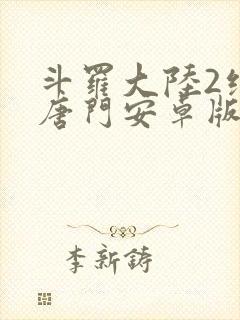 斗羅大陸2
唐門安卓版
李新鋳